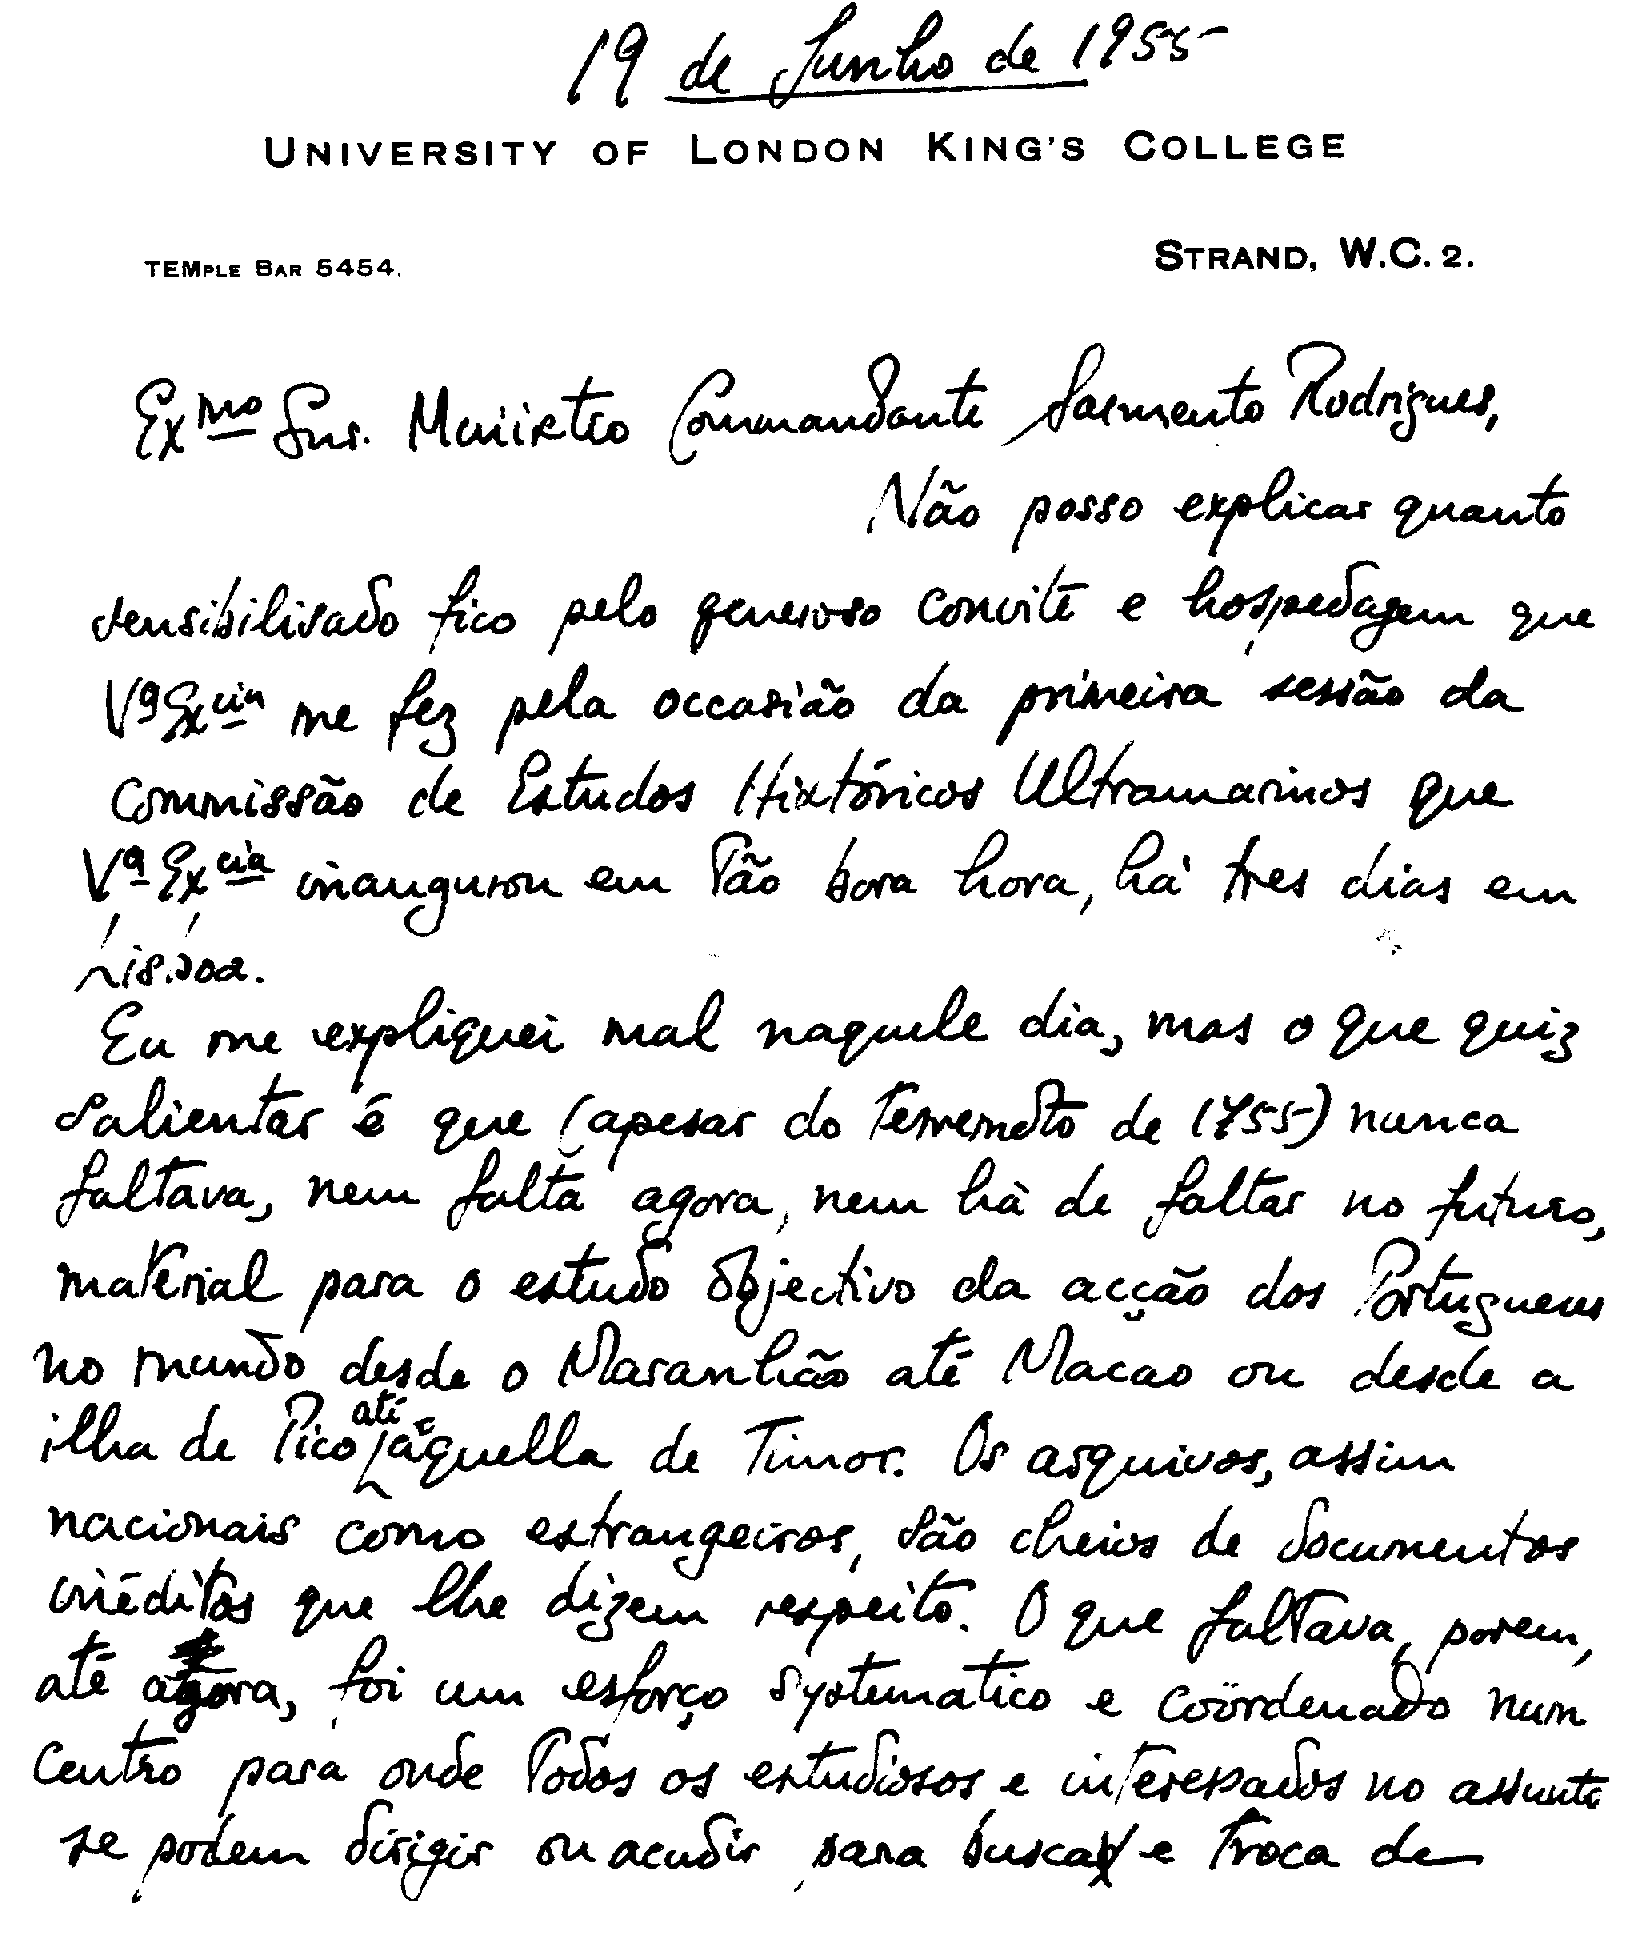 19 de Junho de 1955
UNIVERSITY OF LONDON KING'S COLLEGE
TEMPLE BAR 5454.
STRAND, W.C. 2.
Exmo Snr. Ministro Commandante Sarmento Rodrigues,
Não posso explicar quanto
sensibilisado fico pelo generoso convite e hospedagem que
Vª Excia me fez pela occasião da primeira sessão da
Commissão de Estudos Históricos Ultramarinos que
Vª Excia inaugurou em tão bora hora, há tres dias em
Lisboa.
Eu me expliquei mal naquele dia, mas o que quiz
salientar é que (apesar do terremoto de 1755) nunca
faltava, nem falta agora, nem há de faltar no futuro,
material para o estudo objectivo da acção dos Portugueses
no mundo desde o Maranhão até Macao ou desde a
ilha de Pico até áquella de Timor. Os arquivos, assim
nacionais como estrangeiros, são cheios de documentos
inéditos que lhe dizem respeito. O que faltava, porem,
até agora, foi um esforço systematico e coördenado num
Centro para onde todos os estudiosos e interessados no assunto
se podem dirigir ou acudir para busca e troca de